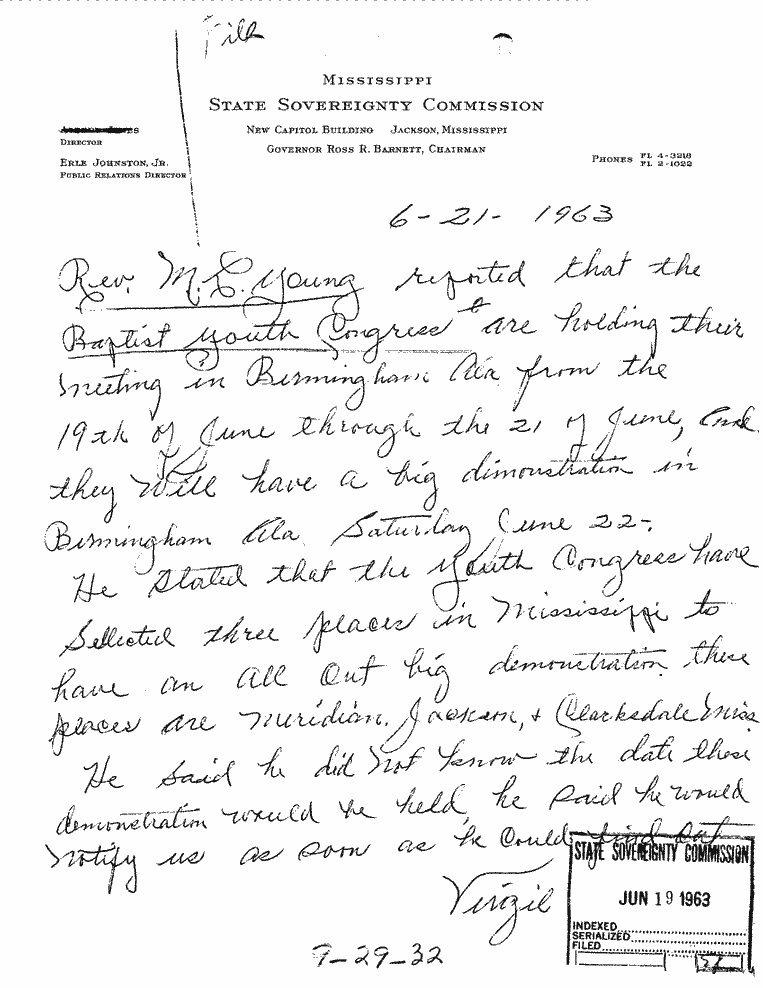 File
MISSISSIPPI
STATE SOVEREIGNTY COMMISSION
NEW CAPITOL BUILDING JACKSON, MISSISSIPPI
GOVERNOR ROSS R. BARNETT, CHAIRMAN
DIRECTOR
ERLE JOHNSTON, JR.
PUBLIC RELATIONS DIRECTOR
PHONES FL 4-3218
FL 2-1022
6-21-1963
Rev. M.L. Young reported that the
Baptist Youth Congress are holding their
meeting in Birmingham Ala from the
19th of June through the 21 of June, and
they will have a big dimonstration in
Birmingham Ala. Saturday June 22-.
He stated that the Youth Congress have
Sellected three places in Mississippi to
have an all out big demonstration. these
places are Meridian, Jackson, & Clarksdale Miss
He said he did not know the date these
demonstration would be held, he said he would
notify us as soon as he could find out
Virgil
STATE SOVEREIGNTY COMMISSION
JUN 19 1963
INDEXED
SERIALIZED
FILED
9-29-32